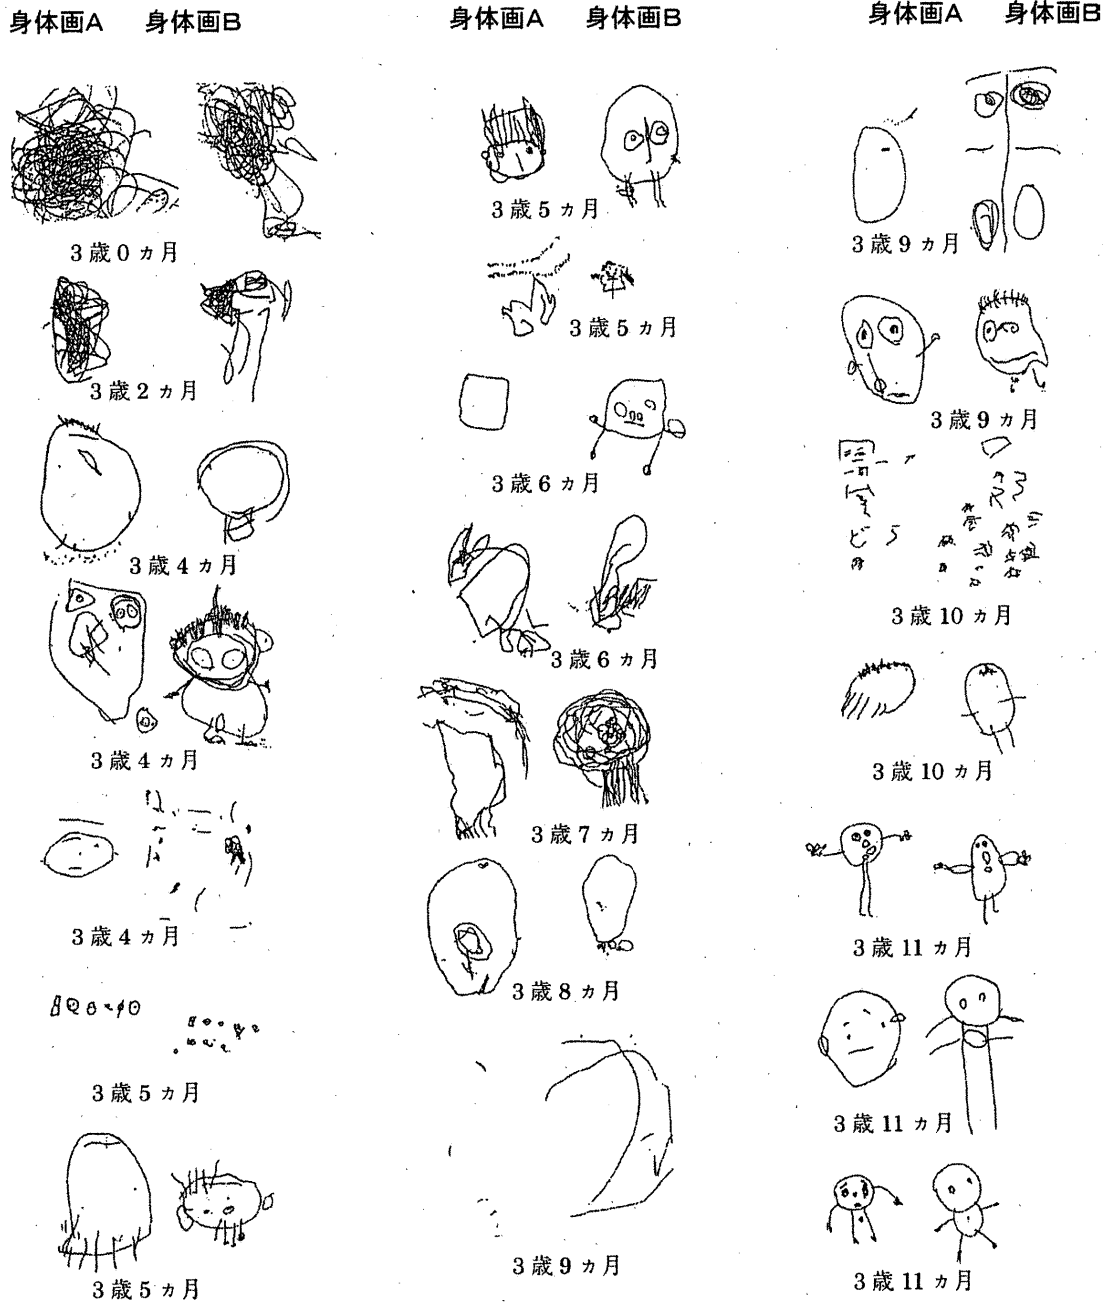 身体画A 身体画B
3歳0ヵ月
3歳2ヵ月
3歳4ヵ月
3歳4ヵ月
3歳4ヵ月
3歳5ヵ月
3歳5ヵ月
身体画A 身体画B
3歳5ヵ月
3歳5ヵ月
3歳6ヵ月
3歳6ヵ月
3歳7ヵ月
3歳8ヵ月
3歳9ヵ月
身体画A 身体画B
3歳9ヵ月
3歳9ヵ月
3歳10ヵ月
3歳10ヵ月
3歳11ヵ月
3歳11ヵ月
3歳11ヵ月